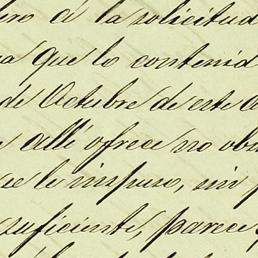 á la solicitud
que lo contenid
de Octubre de este a
allí ofrece no obs
le impuso, sin p
suficiente, parece